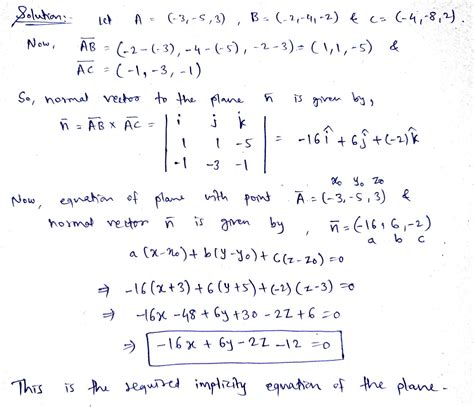 Solution:- let A = (-3,-5,3) , B = (-2,-4,-2) & C = (-4,-8,2).
Now, AB = (-2-(-3), -4-(-5), -2-3) = (1,1,-5) &
AC = (-1,-3,-1)
So, normal vector to the plane n̄ is given by,
n̄ = AB × AC = | i j k |
| 1 1 -5 | = -16î + 6ĵ + (-2)k̂
| -1 -3 -1 |
x₀ y₀ z₀
Now, equation of plane with point A = (-3,-5,3) &
normal vector n̄ is given by , n̄ = (-16, 6, -2)
a b c
a(x-x₀) + b(y-y₀) + c(z-z₀) = 0
⇒ -16(x+3) + 6(y+5) + (-2)(z-3) = 0
⇒ -16x - 48 + 6y + 30 - 2z + 6 = 0
⇒ -16x + 6y - 2z - 12 = 0
This is the required implicity equation of the plane.